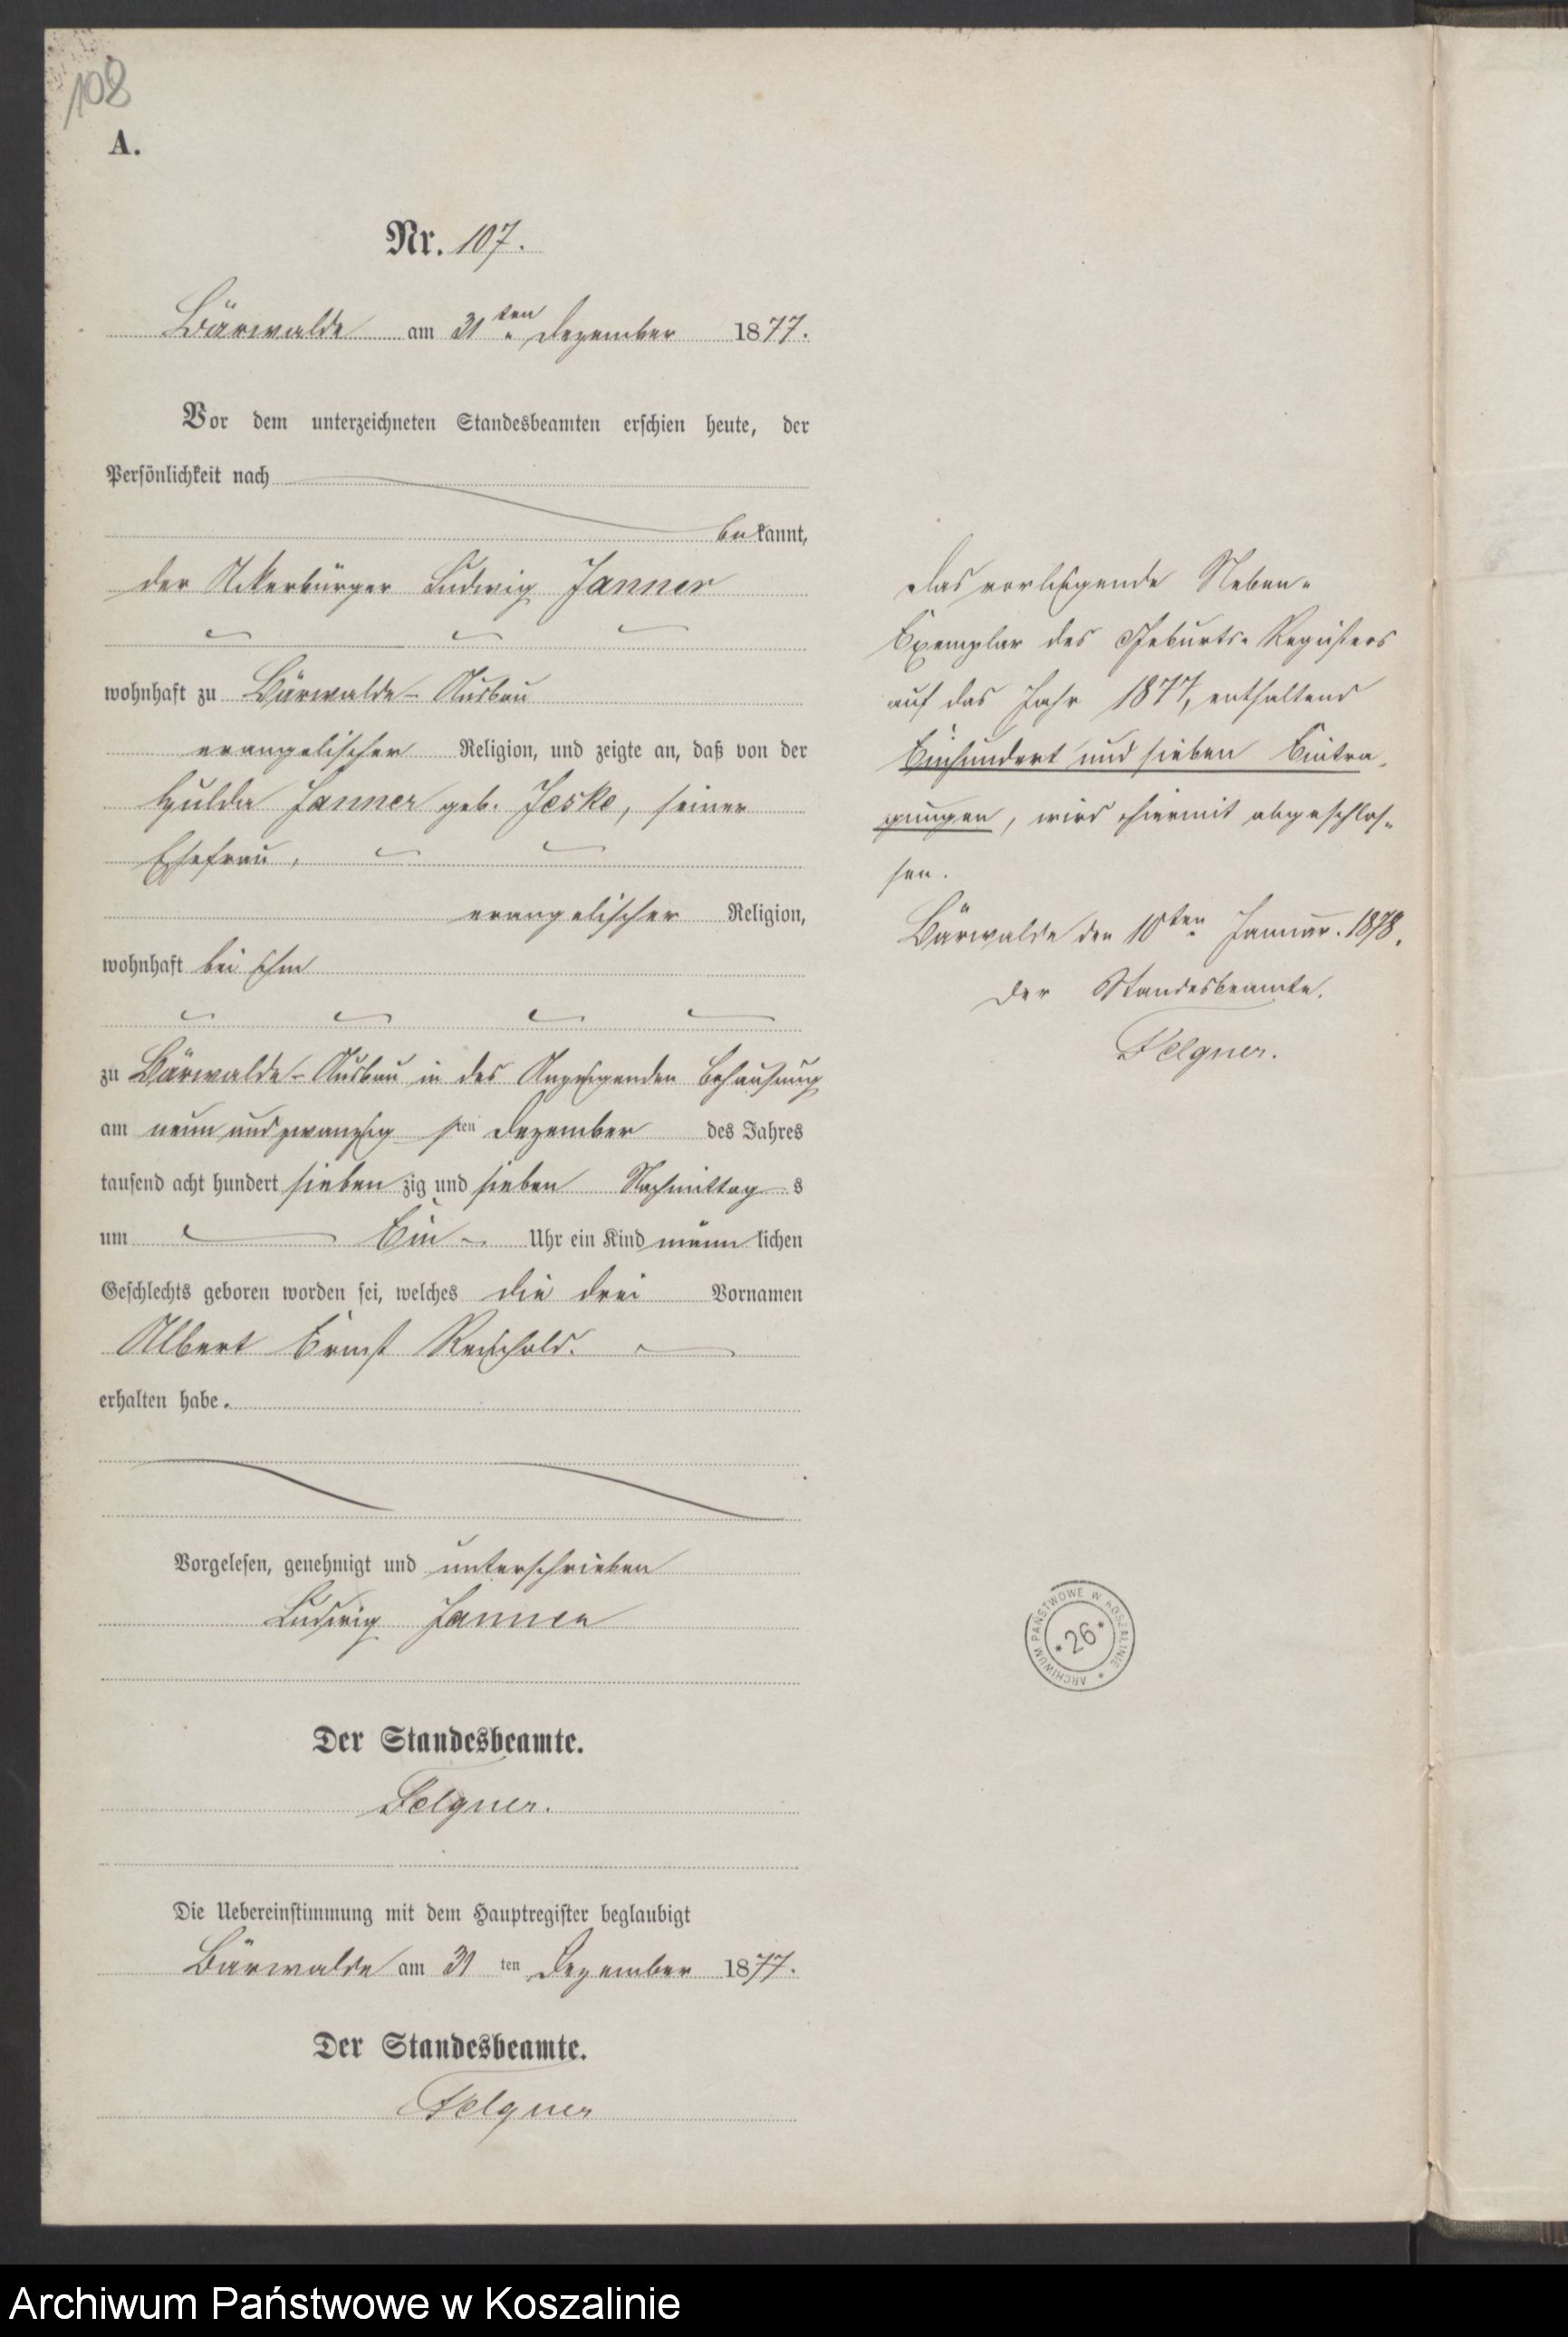 108
A.
Nr. 107.
Bärwalde am 31ten Dezember 1877.
Vor dem unterzeichneten Standesbeamten erschien heute, der
Persönlichkeit nach
bekannt,
der Ackerbürger Ludwig Janner
wohnhaft zu Bärwalde-Ausbau
evangelischer Religion, und zeigte an, daß von der
Hulda Janner geb. Jeske, seiner
Ehefrau,
evangelischer Religion,
wohnhaft bei ihm
zu Bärwalde-Ausbau in des Anzeigenden Behausung
am neun und zwanzigsten Dezember des Jahres
tausend acht hundert siebenzig und sieben Nachmittags
um Ein Uhr ein Kind männlichen
Geschlechts geboren worden sei, welches die drei Vornamen
Albert Ernst Reinhold.
erhalten habe.
Vorgelesen, genehmigt und unterschrieben
Ludwig Janner
Der Standesbeamte.
Felgner.
Die Uebereinstimmung mit dem Hauptregister beglaubigt
Bärwalde am 31 ten Dezember 1877.
Der Standesbeamte.
Felgner
Das vorliegende Neben-
Exemplar des Geburts-Registers
auf das Jahr 1877, enthaltend
Einhundert und sieben Eintra-
gungen, wird hiermit abgeschlos-
sen.
Bärwalde den 10ten Januar 1878.
Der Standesbeamte.
Felgner.
ARCHIWUM PAŃSTWOWE W KOSZALINIE
*26*
Archiwum Państwowe w Koszalinie